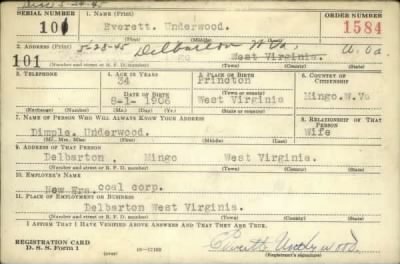 SERIAL NUMBER 1. NAME (Print) ORDER NUMBER
101 Everett. Underwood. 1584
(First) (Middle) (Last)
2. ADDRESS (Print) 5-28-45 Delbarton W Va
101 Mingo West Virginia.
(Number and street or R. F. D. number) (Town) (County) (State)
3. TELEPHONE 4. AGE IN YEARS 5. PLACE OF BIRTH 6. COUNTRY OF CITIZENSHIP
34 Princton
DATE OF BIRTH (Town or county)
8-1- 1906 West Virginia Mingo.W.Va
(Exchange) (Number) (Mo.) (Day) (Yr.) (State or country)
7. NAME OF PERSON WHO WILL ALWAYS KNOW YOUR ADDRESS 8. RELATIONSHIP OF THAT PERSON
Dimple. Underwood. Wife
(Mr., Mrs., Miss) (First) (Middle) (Last)
9. ADDRESS OF THAT PERSON
Delbarton , Mingo West Virginia.
(Number and street or R. F. D. number) (Town) (County) (State)
10. EMPLOYER'S NAME
New Era. coal corp.
11. PLACE OF EMPLOYMENT OR BUSINESS
Delbarton West Virginia.
(Number and street or R. F. D. number) (Town) (County) (State)
I AFFIRM THAT I HAVE VERIFIED ABOVE ANSWERS AND THAT THEY ARE TRUE.
REGISTRATION CARD
D. S. S. Form 1 Everett Underwood.
(Registrant's signature)